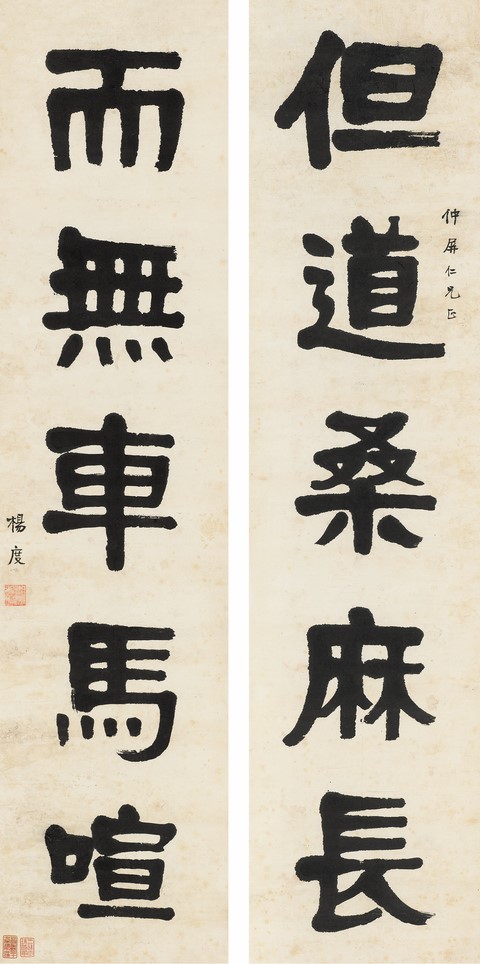 但道桑麻長
仲屏仁兄正
而無車馬喧
楊度